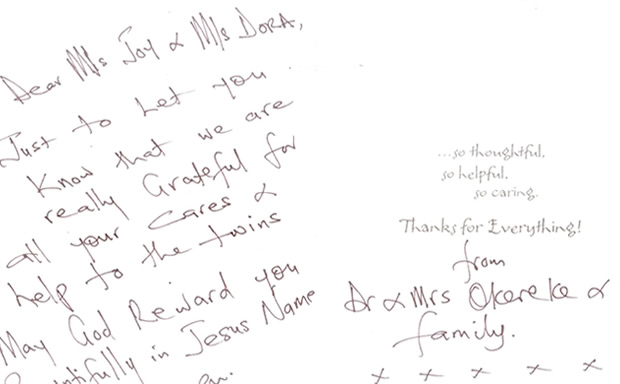 Dear M/s Joy & M/s DORA,
Just to Let you
Know that we are
really Grateful for
all your cares &
help to the twins
May God Reward you
in Jesus Name
...so thoughtful.
so helpful.
so caring.
Thanks for Everything!
from
Dr & Mrs Okereke &
family.
x x x x x